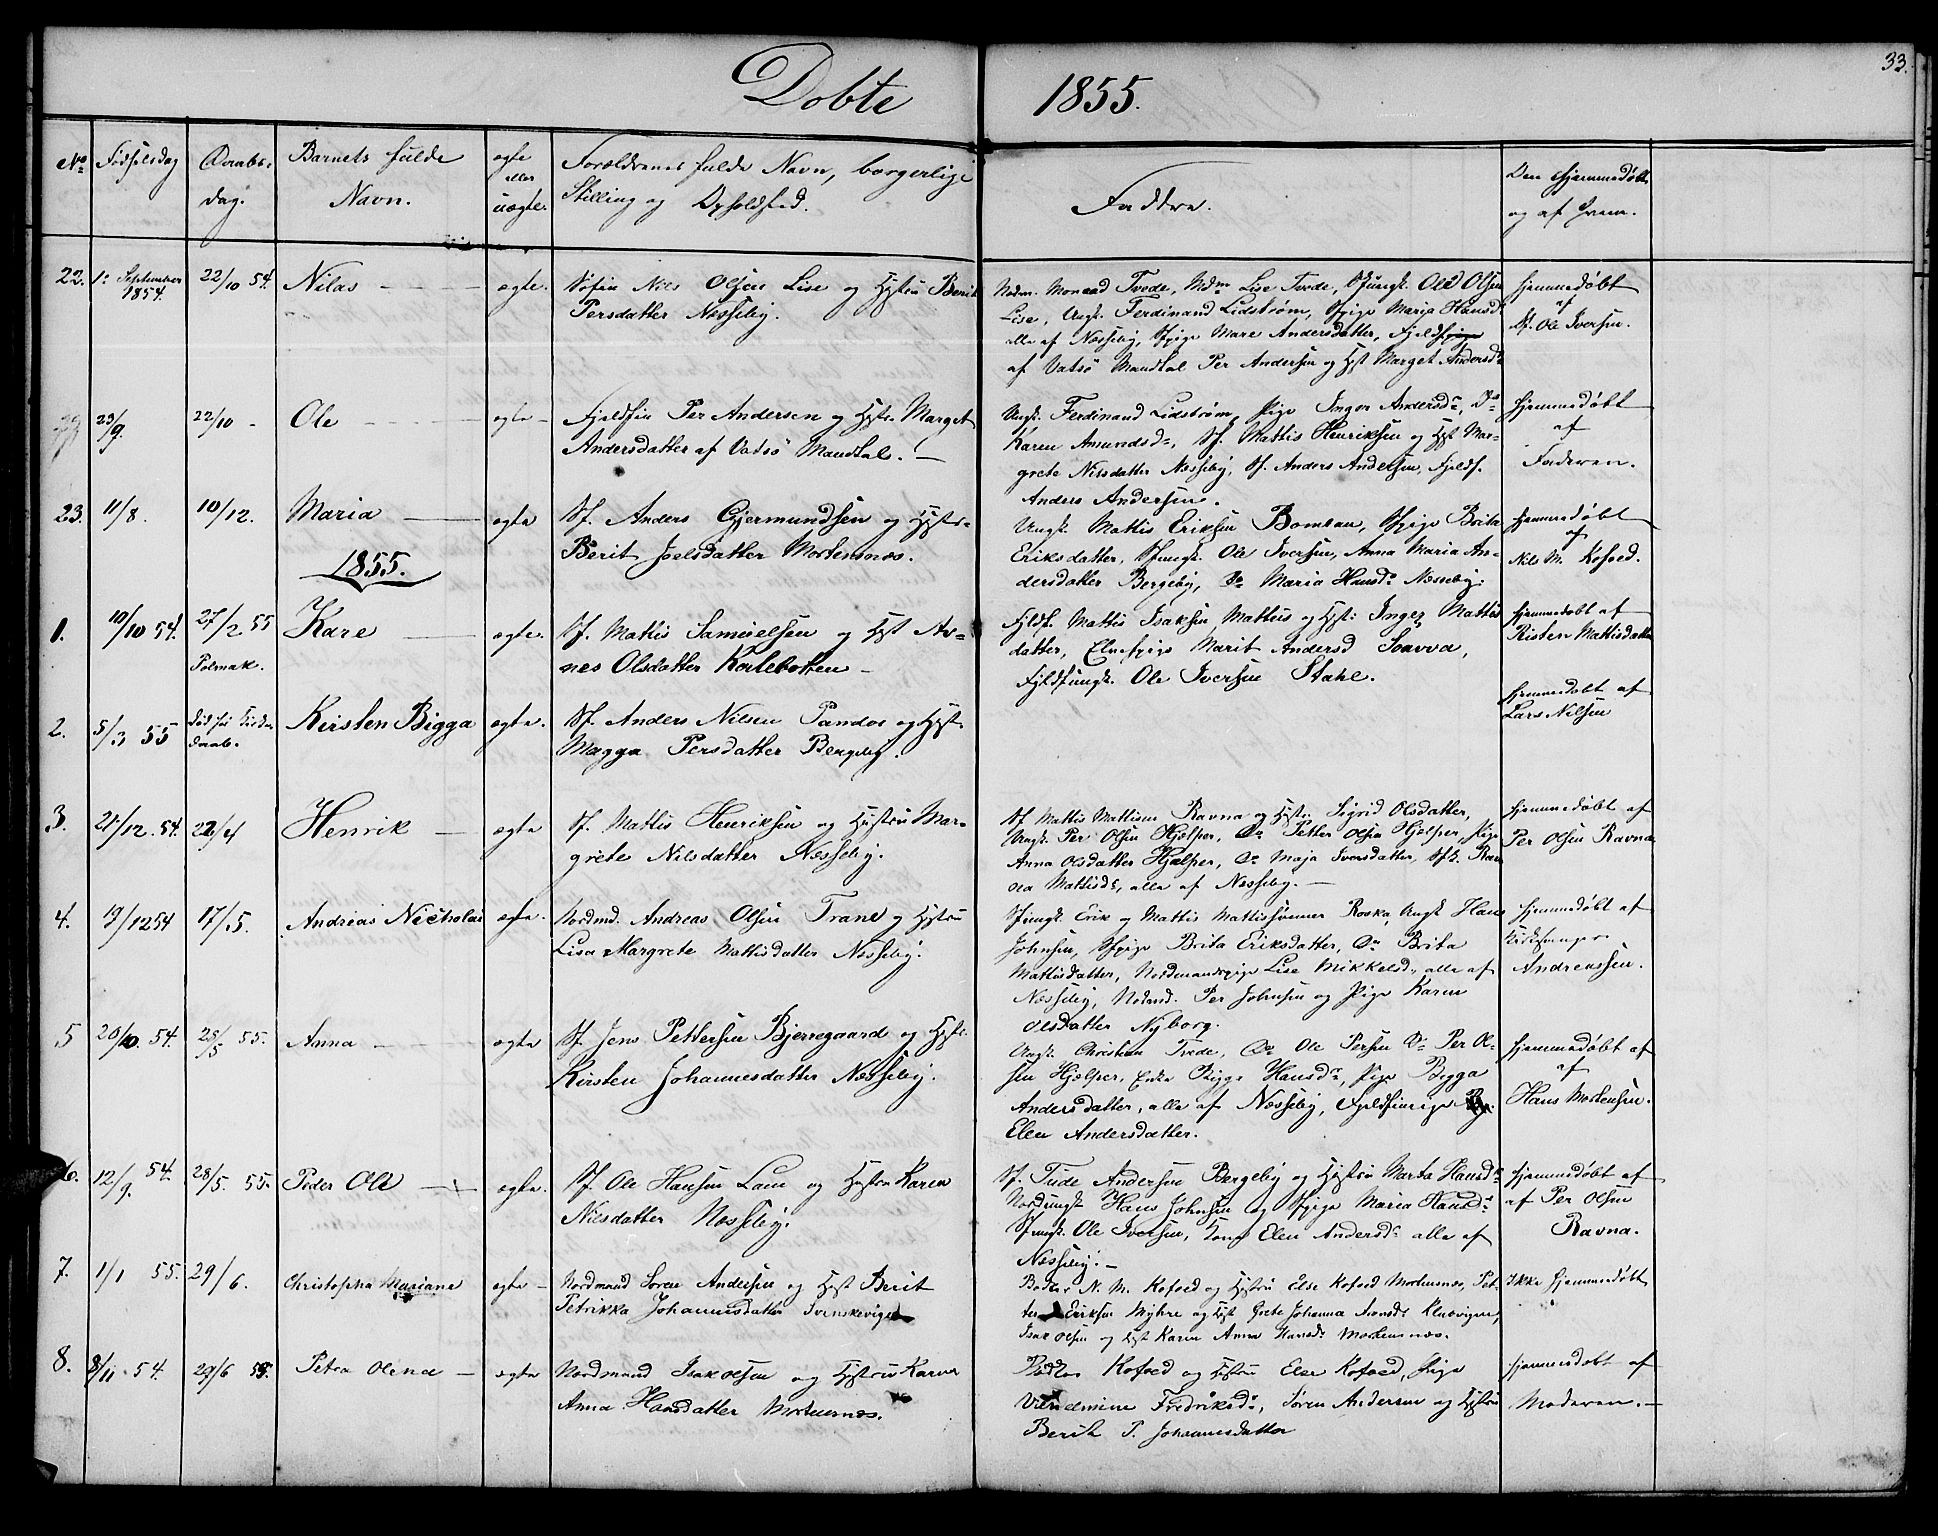 33.
Døbte 1855.
No Fødselsdag Daabs- Barnets fulde ægte Forældrenes fulde Navn, borgerlige Faddre. Den Hjemmedøbt
dag. Navn. eller Stilling og Opholdsted. og af hvem.
uægte.
22. 1. September 22/10 54. Nilas ægte. Søfin Nils Olsen Lise og Hystru Berit
1854. Persdatter Næsseby.
Nodm. Monrad Tvede, Mdm Lise Tvede, Ole Olsen
Lise, Ungk. Ferdinand Lidstrøm, Pige Maria Hansd.
alle af Næsseby, Pige Mare Andersdatter,
af Vatsö Mandtal Per Andersen og Hst Marget Andersdr
Hjemmedøbt
af
Sf. Ole Iversen.
23/9. 22/10 - Ole ægte - Fjeldfin Per Andersen og Hstr. Marget
Andersdatter af Vadsö Mandtal. -
Ungk. Ferdinand Lidstrøm, Pige Inger Andersdr, Do
Karen Amundsdr, Sf. Mattis Henriksen og Hst Mar-
grete Nilsdatter Næsseby, Sf. Anders Andersen, Fjeldf.
Anders Andersen.
Hjemmedøbt
af
Faderen.
23. 11/8. 10/12. Maria ægte Sf. Anders Gjermundsen og Hystr.
Berit Joelsdatter Mortensnæs.
Ungk. Mattis Eriksen Bomban, Pige Brita
Eriksdatter, Ole Iversen, Anna Maria An-
dersdatter Bergeby, Do Maria Hansdr Næsseby.
Hjemmedøbt
af
Nils M. Kofoed.
1855.
1. 10/10 54. 27/2 55 Kare ægte. Sf. Mattis Samuelsen og Hst Ag-
Polmak. nes Olsdatter Karlebotten -
Fjldf. Mattis Isaksen Mattus og Hst: Inger Mattis
datter, Elvepige Marit Andersd Soavva,
Ole Iversen Stahl.
Hjemmedøbt af
Risten Mattisdatter
2. 5/3 55 død før Kirke Kirsten Bigga ægte. Sf. Anders Nilsen Pandos og Hystr.
daab. Magga Persdatter Bergeby.
Hjemmedøbt af
Lars Nilsen
3. 21/12. 54. 22/4 Henrik ægte Sf. Mattis Henriksen og Hustru Mar-
grete Nilsdatter Næsseby.
Sf Mattis Mattisen Ravna og Hstr. Sigrid Olsdatter,
Ungk. Per Olsen Hjelper, Do Petter Olsen Hjelper, Pige
Anna Olsdatter Hjelper, Do Maja Iversdatter,
na Mattisdr, alle af Næsseby. -
Hjemmedøbt af
Per Olsen Ravna
4. 19/12 54 17/5. Andreas Nicholai ægte. Nordmd. Andreas Olsen Trane og Hystru
Lisa Margrete Mattisdatter Næsseby.
Erik og Mattis Mattissønner Roska, Ungk Hans
Johnsen, Pige Brita Eriksdatter, Do Brita
Mattisdatter, Nordmandspige Lise Mikkelsd. alle af
Næsseby, Nodmd. Per Johnsen og Pige Karen
Olsdatter Nyborg.
Hjemmedøbt af
Kirkesanger
Andreassen.
5 20/10. 54. 25/5 55. Anna ægte Sf. Jens Pettersen Bjerregaard og Hstr.
Kirsten Johannesdatter Næsseby.
Ungk. Christian Tvede, Do Ole Persen Do Per Ol-
sen Hjelper, Enke Bigga Hansdr, Pige Bigga
Andersdatter, alle af Næsseby,
Elen Andersdatter.
Hjemmedøbt af
af
Hans Mortensen.
6. 12/9. 54. 28/5. 55. Peder Ole ægte. Sf. Ole Hansen Lane og Hustru Karen
Nilsdatter Næsseby.
Sf. Tude Andersen Bergeby og Hystru Marta Hansdr
Hans Johnsen og Pige Maria Hansdr
Ole Iversen, Elen Andersdr alle af
Næsseby. -
Hjemmedøbt af
af Per Olsen
Ravna.
7. 1/1 55. 29/6. Christopha Mariana ægte - Nordmand Søren Andersen og Hst Berit
Petrikka Johannesdatter Svenskevigen
N. M. Kofoed og Hystru Else Kofoed Mortensnæs, Pet-
ter Eriksen Myhre og Hst Grete Johanna Klubvigen,
Isak Olsen og Hst Karen Anna Hansdr Mortensnæs.
Ikke Hjemmedøbt
8. 8/11 - 54. 29/6 55. Petra Olena ægte Nordmand Isak Olsen og Hystru Karen
Anna Hansdatter Mortensnæs.
Kofoed og Hstru Else Kofoed, Pige
Vendimine Fredriksdr, Søren Andersen og Hystru
Berit P. Johannesdatter
Hjemmedøbt af
Moderen. -